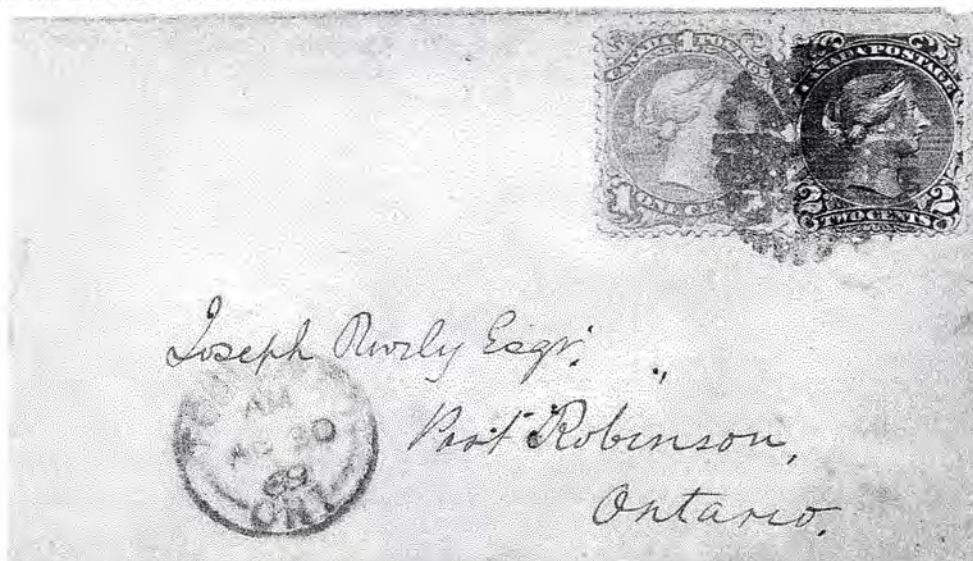 CANADA POSTAGE
1
1 ONE CENT
CANADA POSTAGE
2 TWO CENTS 2
Joseph Esqr.
Port Robinson,
Ontario,
AM
AU 30
69
ONT